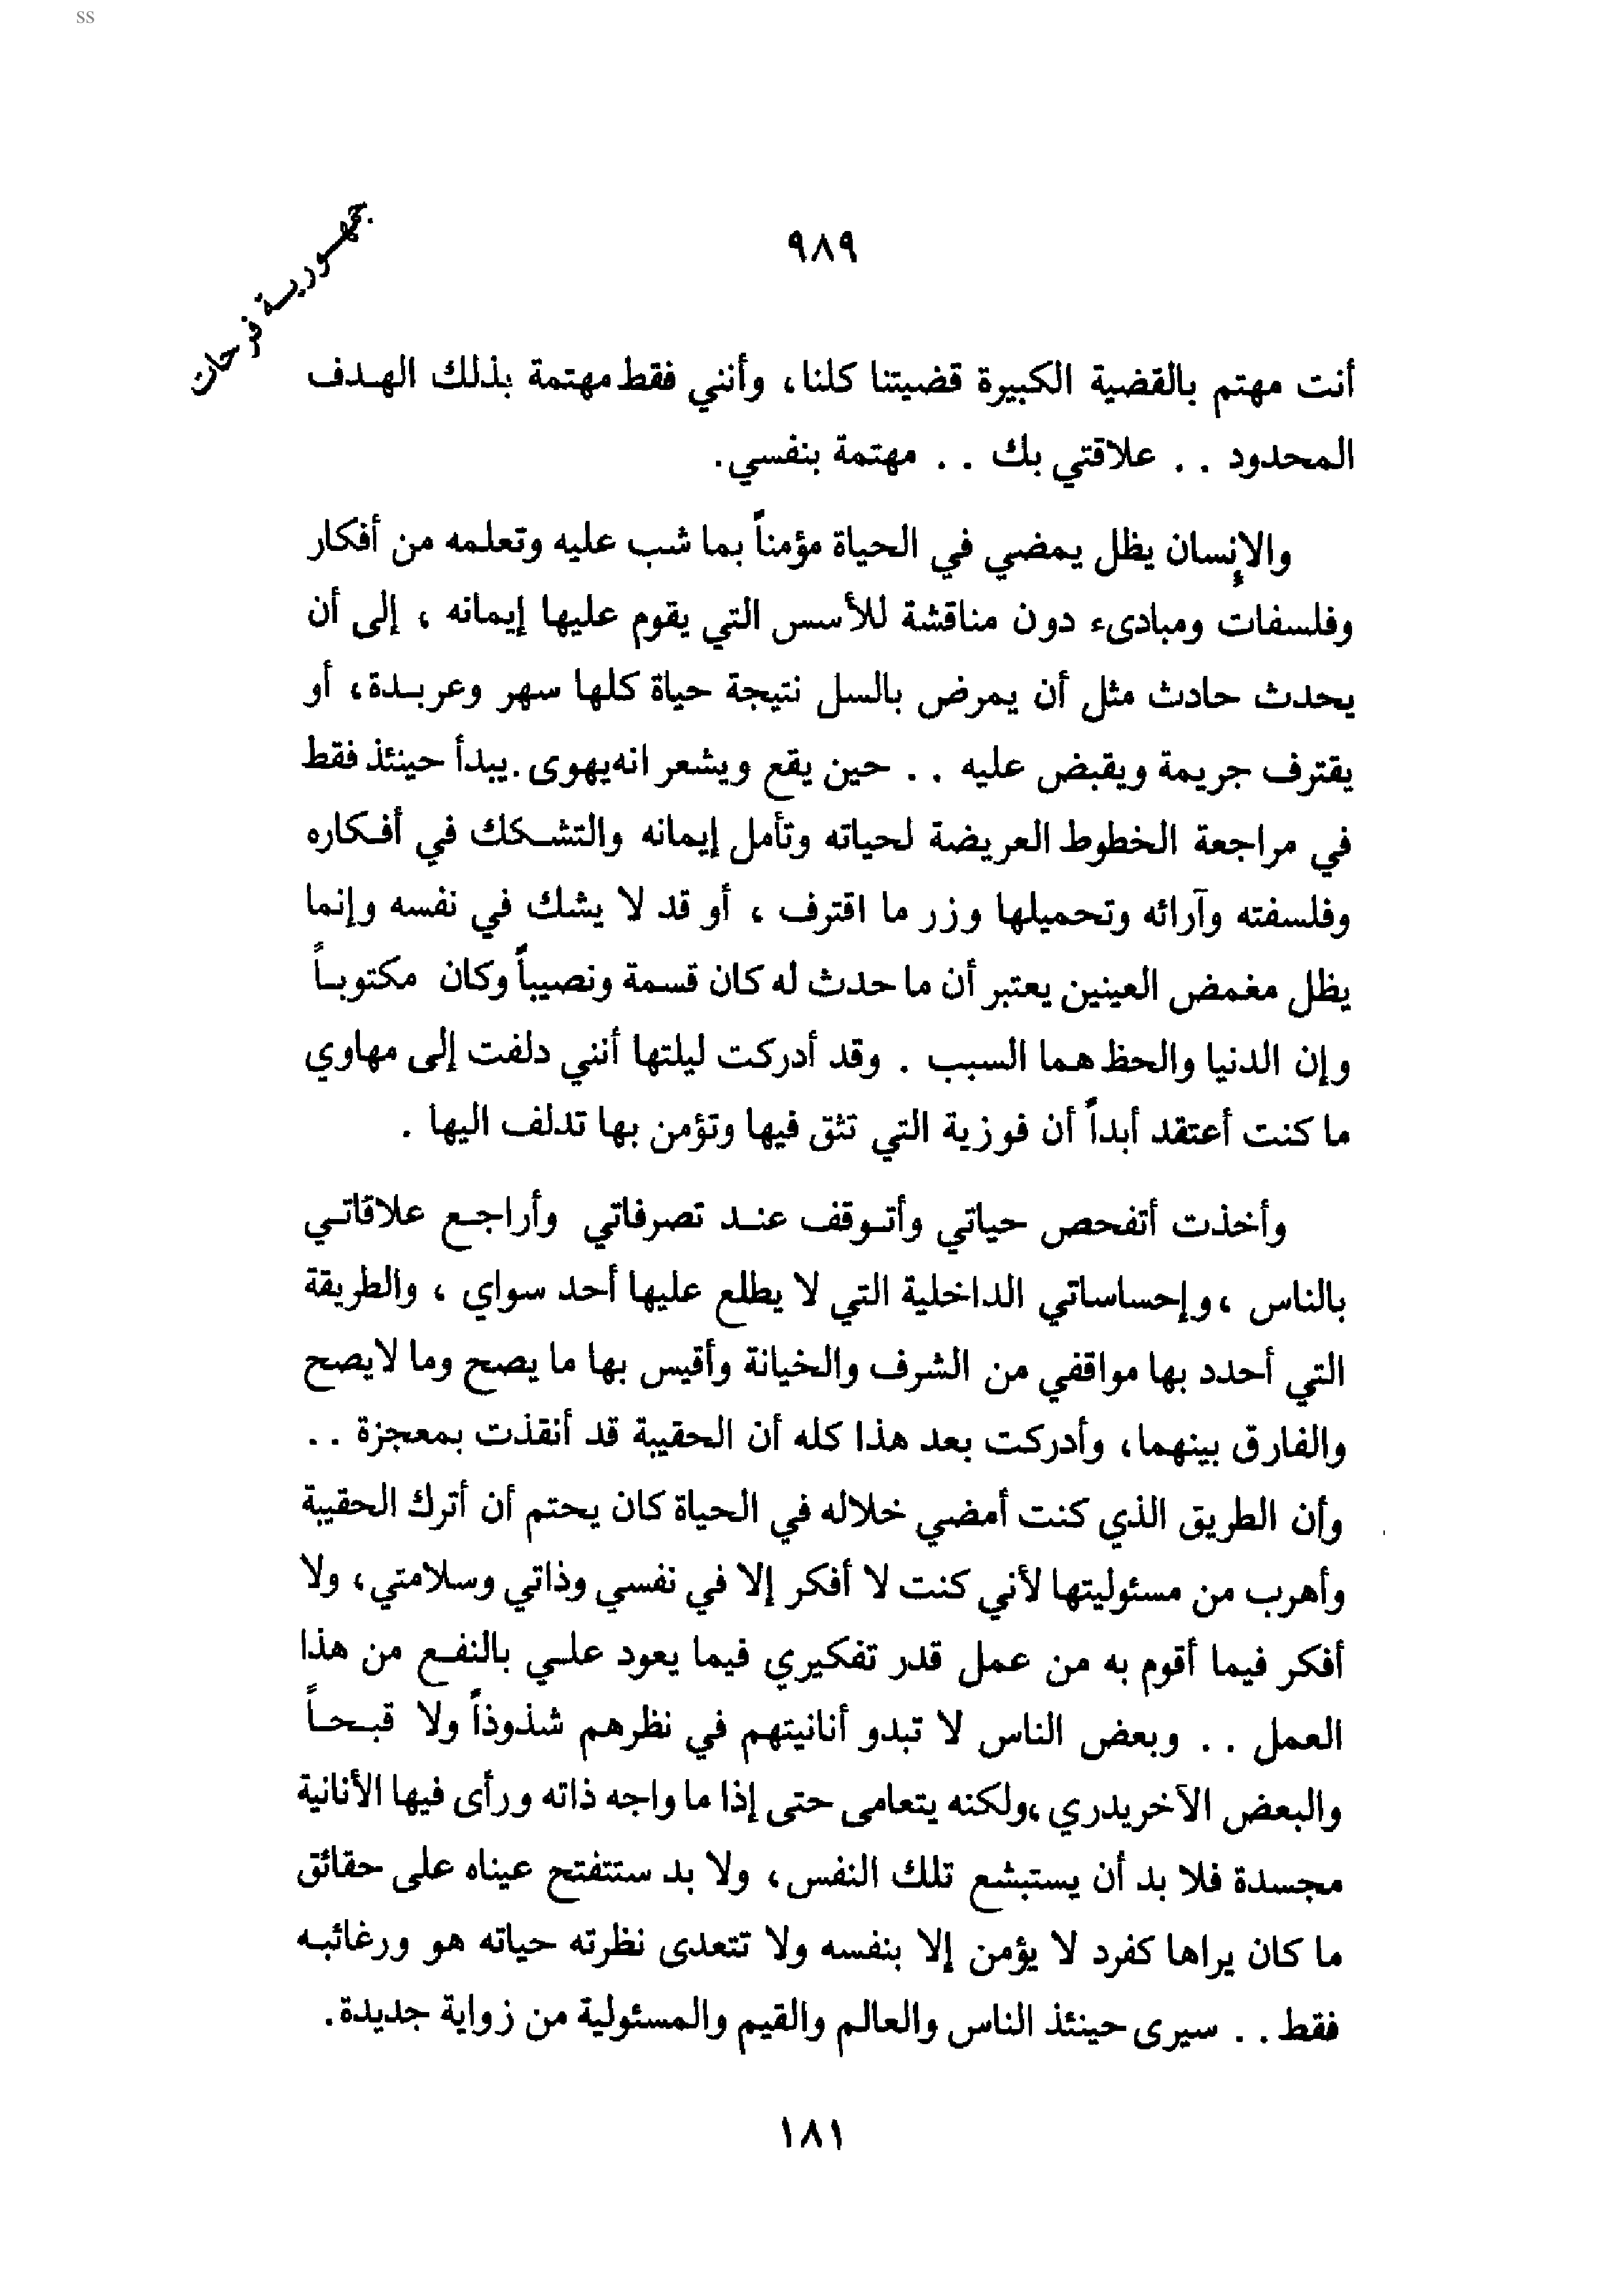 ss
جمهورية فرحات
٩٨٩
أنت مهتم بالقضية الكبيرة قضيتنا كلنا، وأنني فقط مهتمة بذلك الهدف
المحدود . . علاقتي بك . . مهتمة بنفسي.
والإنسان يظل يمضي في الحياة مؤمناً بما شب عليه وتعلمه من أفكار
وفلسفات ومبادىء دون مناقشة للأسس التي يقوم عليها إيمانه ، إلى أن
يحدث حادث مثل أن يمرض بالسل نتيجة حياة كلها سهر وعربدة، أو
يقترف جريمة ويقبض عليه . . حين يقع ويشعر انه يهوى . يبدأ حينئذ فقط
في مراجعة الخطوط العريضة لحياته وتأمل إيمانه والتشكك في أفكاره
وفلسفته وآرائه وتحميلها وزر ما اقترف ، أو قد لا يشك في نفسه وإنما
يظل مغمض العينين يعتبر أن ما حدث له كان قسمة ونصيباً وكان مكتوباً
وإن الدنيا والحظ هما السبب . وقد أدركت ليلتها أنني دلفت إلى مهاوي
ما كنت أعتقد أبداً أن فوزية التي تثق فيها وتؤمن بها تدلف اليها .
وأخذت أتفحص حياتي وأتوقف عند تصرفاتي وأراجع علاقاتي
بالناس ، وإحساساتي الداخلية التي لا يطلع عليها أحد سواي ، والطريقة
التي أحدد بها مواقفي من الشرف والخيانة وأقيس بها ما يصح وما لايصح
والفارق بينهما، وأدركت بعد هذا كله أن الحقيبة قد أنقذت بمعجزة . .
وأن الطريق الذي كنت أمضي خلاله في الحياة كان يحتم أن أترك الحقيبة
وأهرب من مسئوليتها لأني كنت لا أفكر إلا في نفسي وذاتي وسلامتي، ولا
أفكر فيما أقوم به من عمل قدر تفكيري فيما يعود علي بالنفع من هذا
العمل . . وبعض الناس لا تبدو أنانيتهم في نظرهم شذوذاً ولا قبحاً
والبعض الآخر يدري ،ولكنه يتعامى حتى إذا ما واجه ذاته ورأى فيها الأنانية
مجسدة فلا بد أن يستبشع تلك النفس، ولا بد ستتفتح عيناه على حقائق
ما كان يراها كفرد لا يؤمن إلا بنفسه ولا تتعدى نظرته حياته هو ورغائبه
فقط . . سيرى حينئذ الناس والعالم والقيم والمسئولية من زواية جديدة.
١٨١